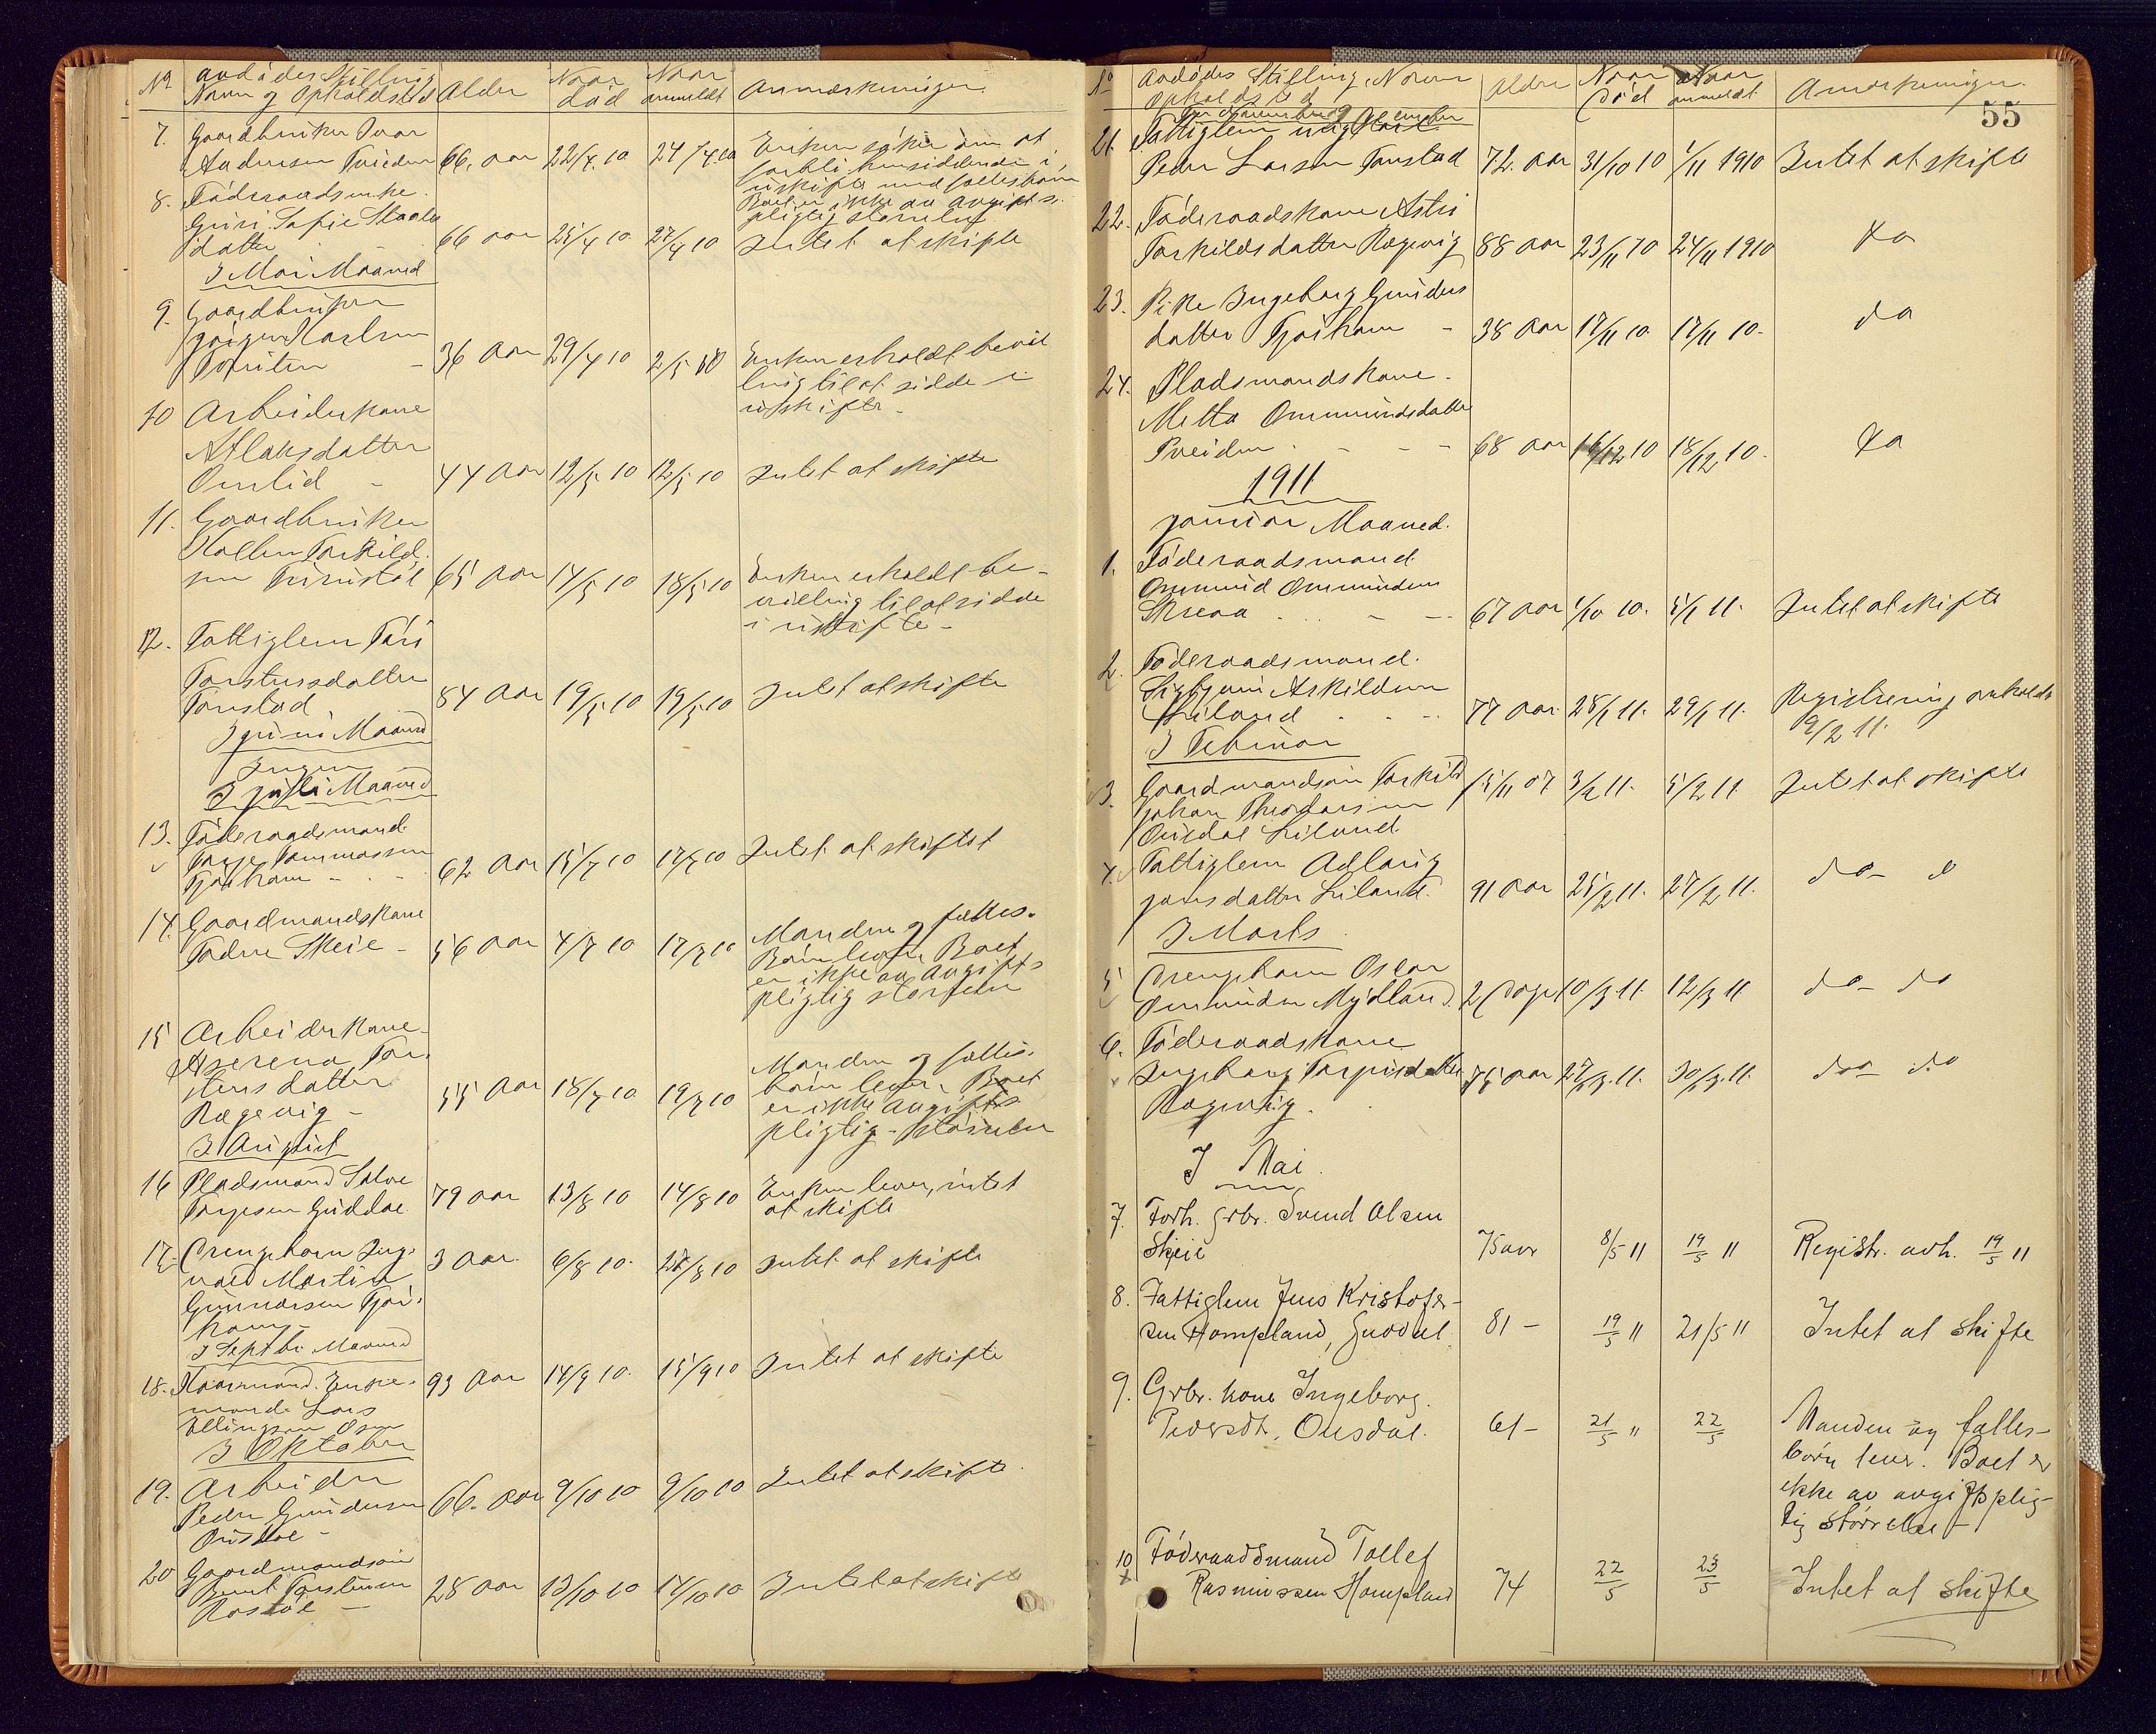 No avdødes Stilling Navn og Opholdsted Alder Naar død Naar anmeldt Anmærkninger.
7. Gaardbruker Ivar
Andersen 66. aar 22/4.10 24/4 10 Enken søker om at
forbli hensiddende i
uskifte med fællesbørn
Boet er ikke av avgifts-
pligtig størrelse
8. Føderaadsenke
Guri Sofie
datter 66 aar 25/4 10 27/4 10 Intet at skifte
I Mai Maaned
9. Gaardbruker
Jørgen Karlsen
36 Aar 29/4 10 2/5 10 Enken erholdt bevil
ling til at sidde i
uskifte.
10 Arbeiderkone
Atlaksdatter
Omlid - 44 Aar 12/5 10 12/5 10 Intet at skifte
11. Gaardbruker
Torkild
sen 65 Aar 17/5 10 18/5 10 Enken erholdt be-
villing til at sidde
i uskifte -
12. Fattiglem
Torstensdatter
Tonstad 84 Aar 19/5 10 19/5 10 Intet at skifte
I Juni Maaned
Ingen
I Juli Maaned
13. Føderaadsmand
Tommassen
Tjørhom - - - 62 Aar 15/7 10 17/7 10 Intet at skiftet
14. Gaardmandskone
Skeie - 56 Aar 4/7 10 17/7 10 Manden og fælles-
Børn lever. Boet
er ikke av avgifts
pligtig størrelse
15 Arbeiderkone
Aserena Tor-
stensdatter
Rægevig - 55 Aar 18/7 10 19/7 10 Manden og fælles-
børn lever. Boet
er ikke avgifts
pligtig - størrelse
I August
16 Pladsmand Salve
79 Aar 13/8 10 14/8 10 Enken lever, intet
at skifte
17. Drengebarn Ing-
vald Martin
Gunnarsen Tjør-
hom - 3 Aar. 6/8 10. 22/8 10 Intet at skifte
I Septbr Maaned
18. Enke-
mand Lars
Ellingsen Osen 93 Aar 14/9 10. 15/9 10 Intet at skifte
I Oktober
19. Arbeider
Peder Gundersen
66. aar 9/10 10 9/10 10 Intet at skifte.
20 Gaardmandsøn
Bernt Torstensen
28 aar 13/10 10 14/10 10 Intet at skifte
55
No Avdødes Stilling, Navn Opholdsted Alder Naar død Naar anmeldt Anmerkninger.
21. Fattiglem
Peder Larsen Tonstad 72. aar 31/10 10 1/11 1910 Intet at skifte
22. Føderaadskone Astri
Torkildsdatter Rægevig 88 aar 23/11 10 24/11 1910 do
23. Pike Ingeborg Gunders
datter Tjørhom - 38 Aar 17/11 10. 17/11 10. do
24. Pladsmandskone.
Metta Ommundsdatter
68 aar 16/12 10 18/12 10. do
1911
Januar Maaned.
1. Føderaadsmand.
Ommund Ommundsen
Skreaa - - 67 aar 1/10 10. 5/1 11. Intet at skifte
2. Føderaadsmand.
Sigbjørn Askildsen
Liland - - 77 Aar. 28/1 11. 29/1 11. Registrering avholdt
9/2 11.
I Februar
3. Gaardmandsøn Torkild
Johan Theodorsen
Ousdal Liland 15/11 07 3/2 11. 5/2 11. Intet at skifte
4. Fattiglem Adlaug
Jonsdatter Liland. 91 Aar 25/2 11. 27/2 11. do - do
I Marts
5 Drengebarn Oskar
Ommundsen Mydland. 2 Dage 10/3 11. 12/3 11 do - do
6. Føderaadskone
Ingeborg
Rægevig. 75 aar 27/3.11. 30/3.11. do do
I Mai.
7. Forh. grbr. Svend Olsen
Skeie 75 aar 8/5 11 19/5 11 Registr. avh. 19/5 11
8. Fattiglem Jens Kristofer-
sen Hompland, Guddal 81 - 19/5 11 21/5 11 Intet at skifte
9. Grbr. kone Ingeborg.
Pedersdt. Ousdal. 61 - 21/5 11 22/5 Manden og fælles-
børn lever. Boet er
ikke av avgiftsplig-
tig størrelse -
10 Føderaadsmand Tollef
Rasmussen Hompland 74 22/5 23/5 Intet at skifte